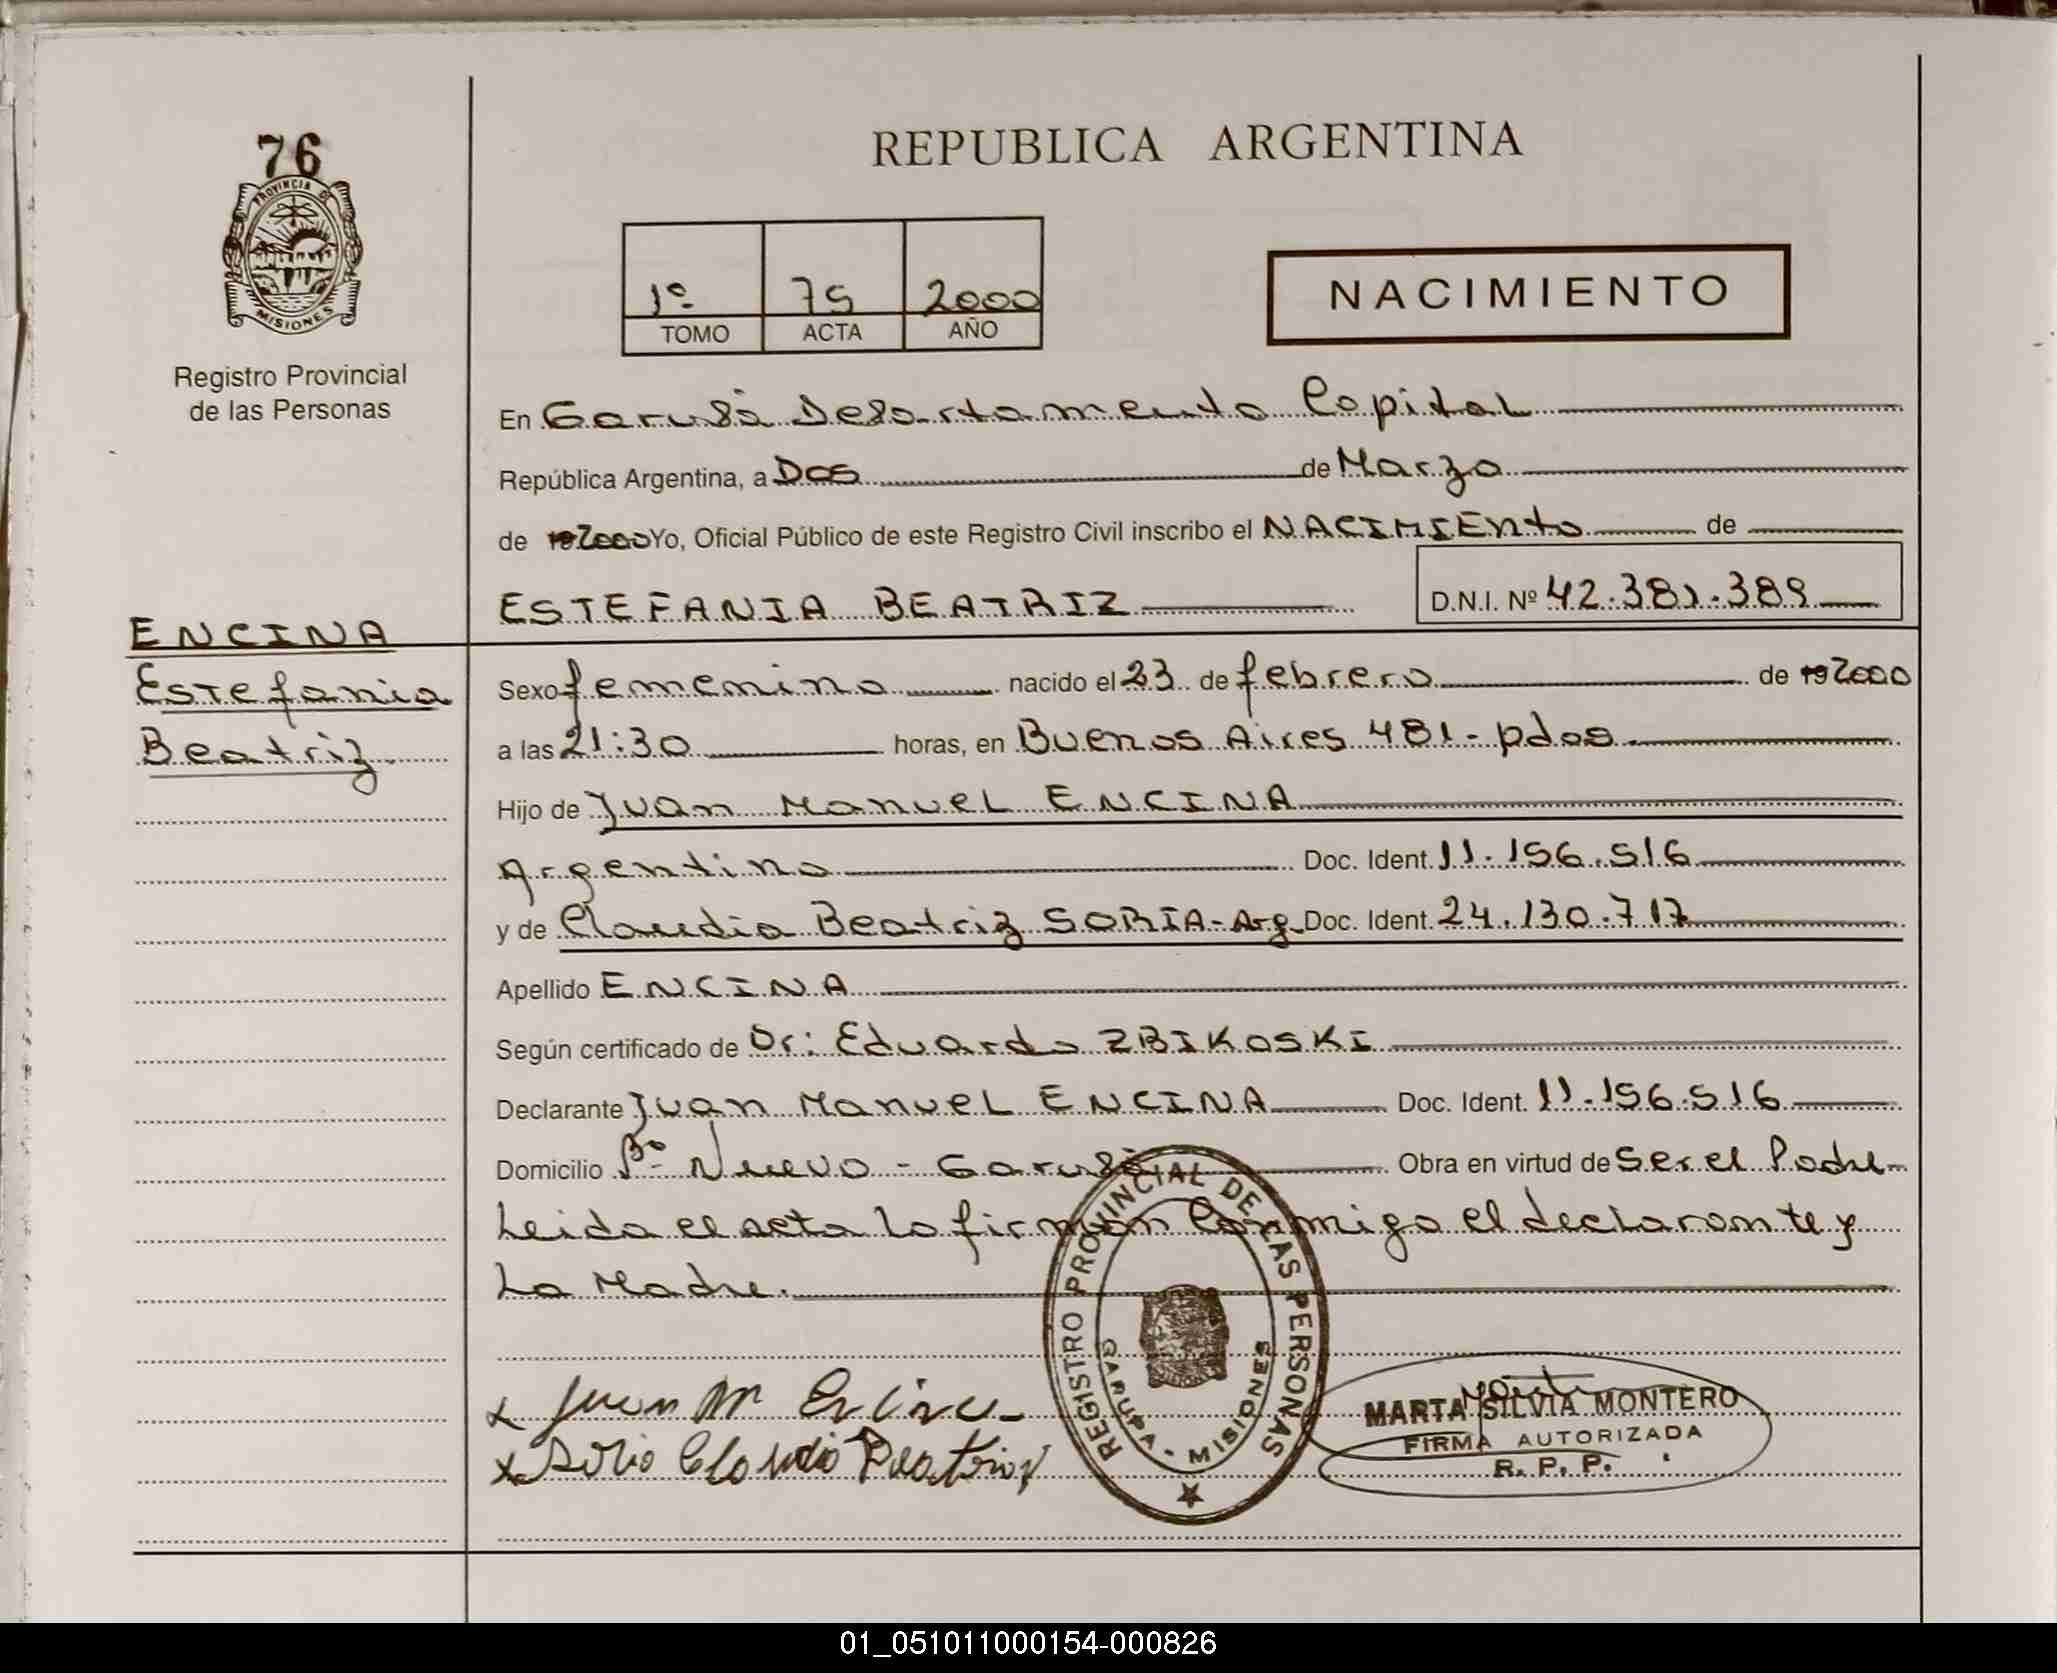 76
PROVINCIA DE
MISIONES
Registro Provincial
de las Personas
REPUBLICA ARGENTINA
1º 75 2000
TOMO ACTA AÑO
NACIMIENTO
En Garupá Departamento Capital
República Argentina, a Dos de Marzo
de 192000 Yo, Oficial Público de este Registro Civil inscribo el NACIMIENto de
ESTEFANIA BEATRIZ D.N.I. Nº 42.381.389
ENCINA
Estefania
Beatriz
Sexo femenino nacido el 23 de febrero de 192000
a las 21:30 horas, en Buenos Aires 481 - pdas
Hijo de Juan Manuel ENCINA
Argentino Doc. Ident. 11.156.516
y de Claudia Beatriz SORIA - Arg Doc. Ident. 24.130.717
Apellido ENCINA
Según certificado de Dr: Eduardo ZBIKOSKI
Declarante Juan Manuel ENCINA Doc. Ident. 11.156.516
Domicilio Bº Nuevo - Garupá Obra en virtud de ser el Padre
Leida el acta la firman conmigo el declarante y
La Madre.
REGISTRO PROVINCIAL DE LAS PERSONAS
GARUPA - MISIONES
x Juan M Encina
x Soria Claudia Beatriz
MARTA SILVIA MONTERO
FIRMA AUTORIZADA
R. P. P.
01_051011000154-000826